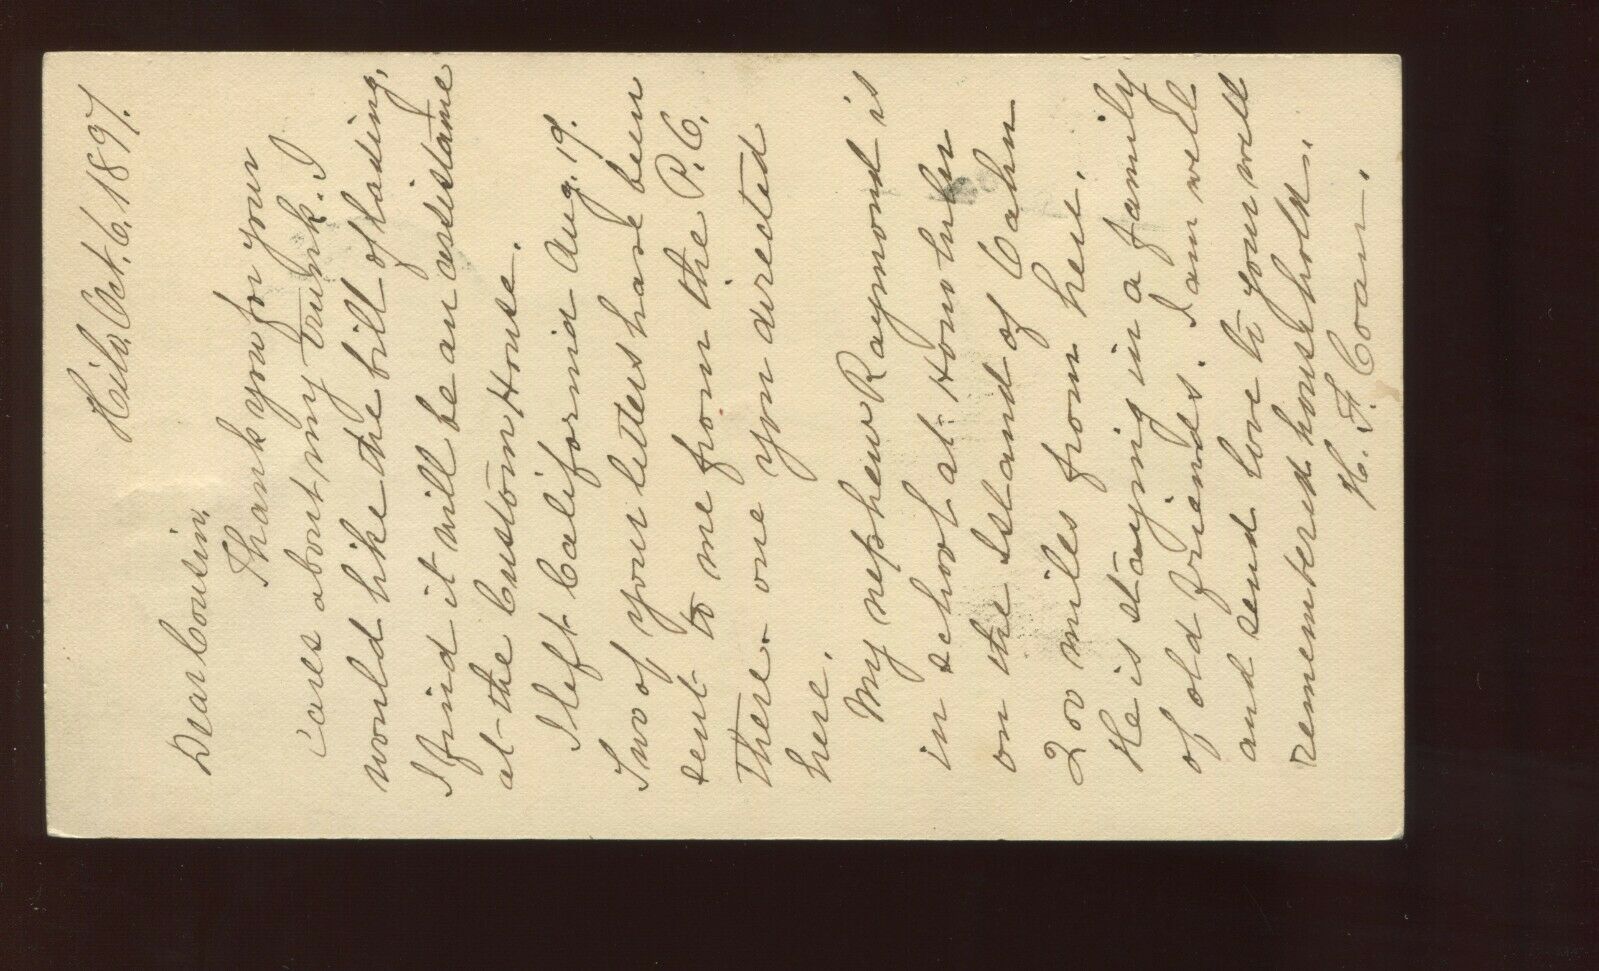 Hilo, Oct. 6, 1897.
Dear Cousin,
Thank you for your
cares about my trunk. I
would like the bill of lading,
I find it will be an assistance
at the Custom House.
I left California Aug. 19.
Two of your letters have been
sent to me from the P.C.
There - one you directed
here.
My nephew Raymond is
in school at Honolulu
on the Island of Oahu
200 miles from here.
He is staying in a family
of old friends. I am well
and send love to your well
remembered household.
H. F. Coan.